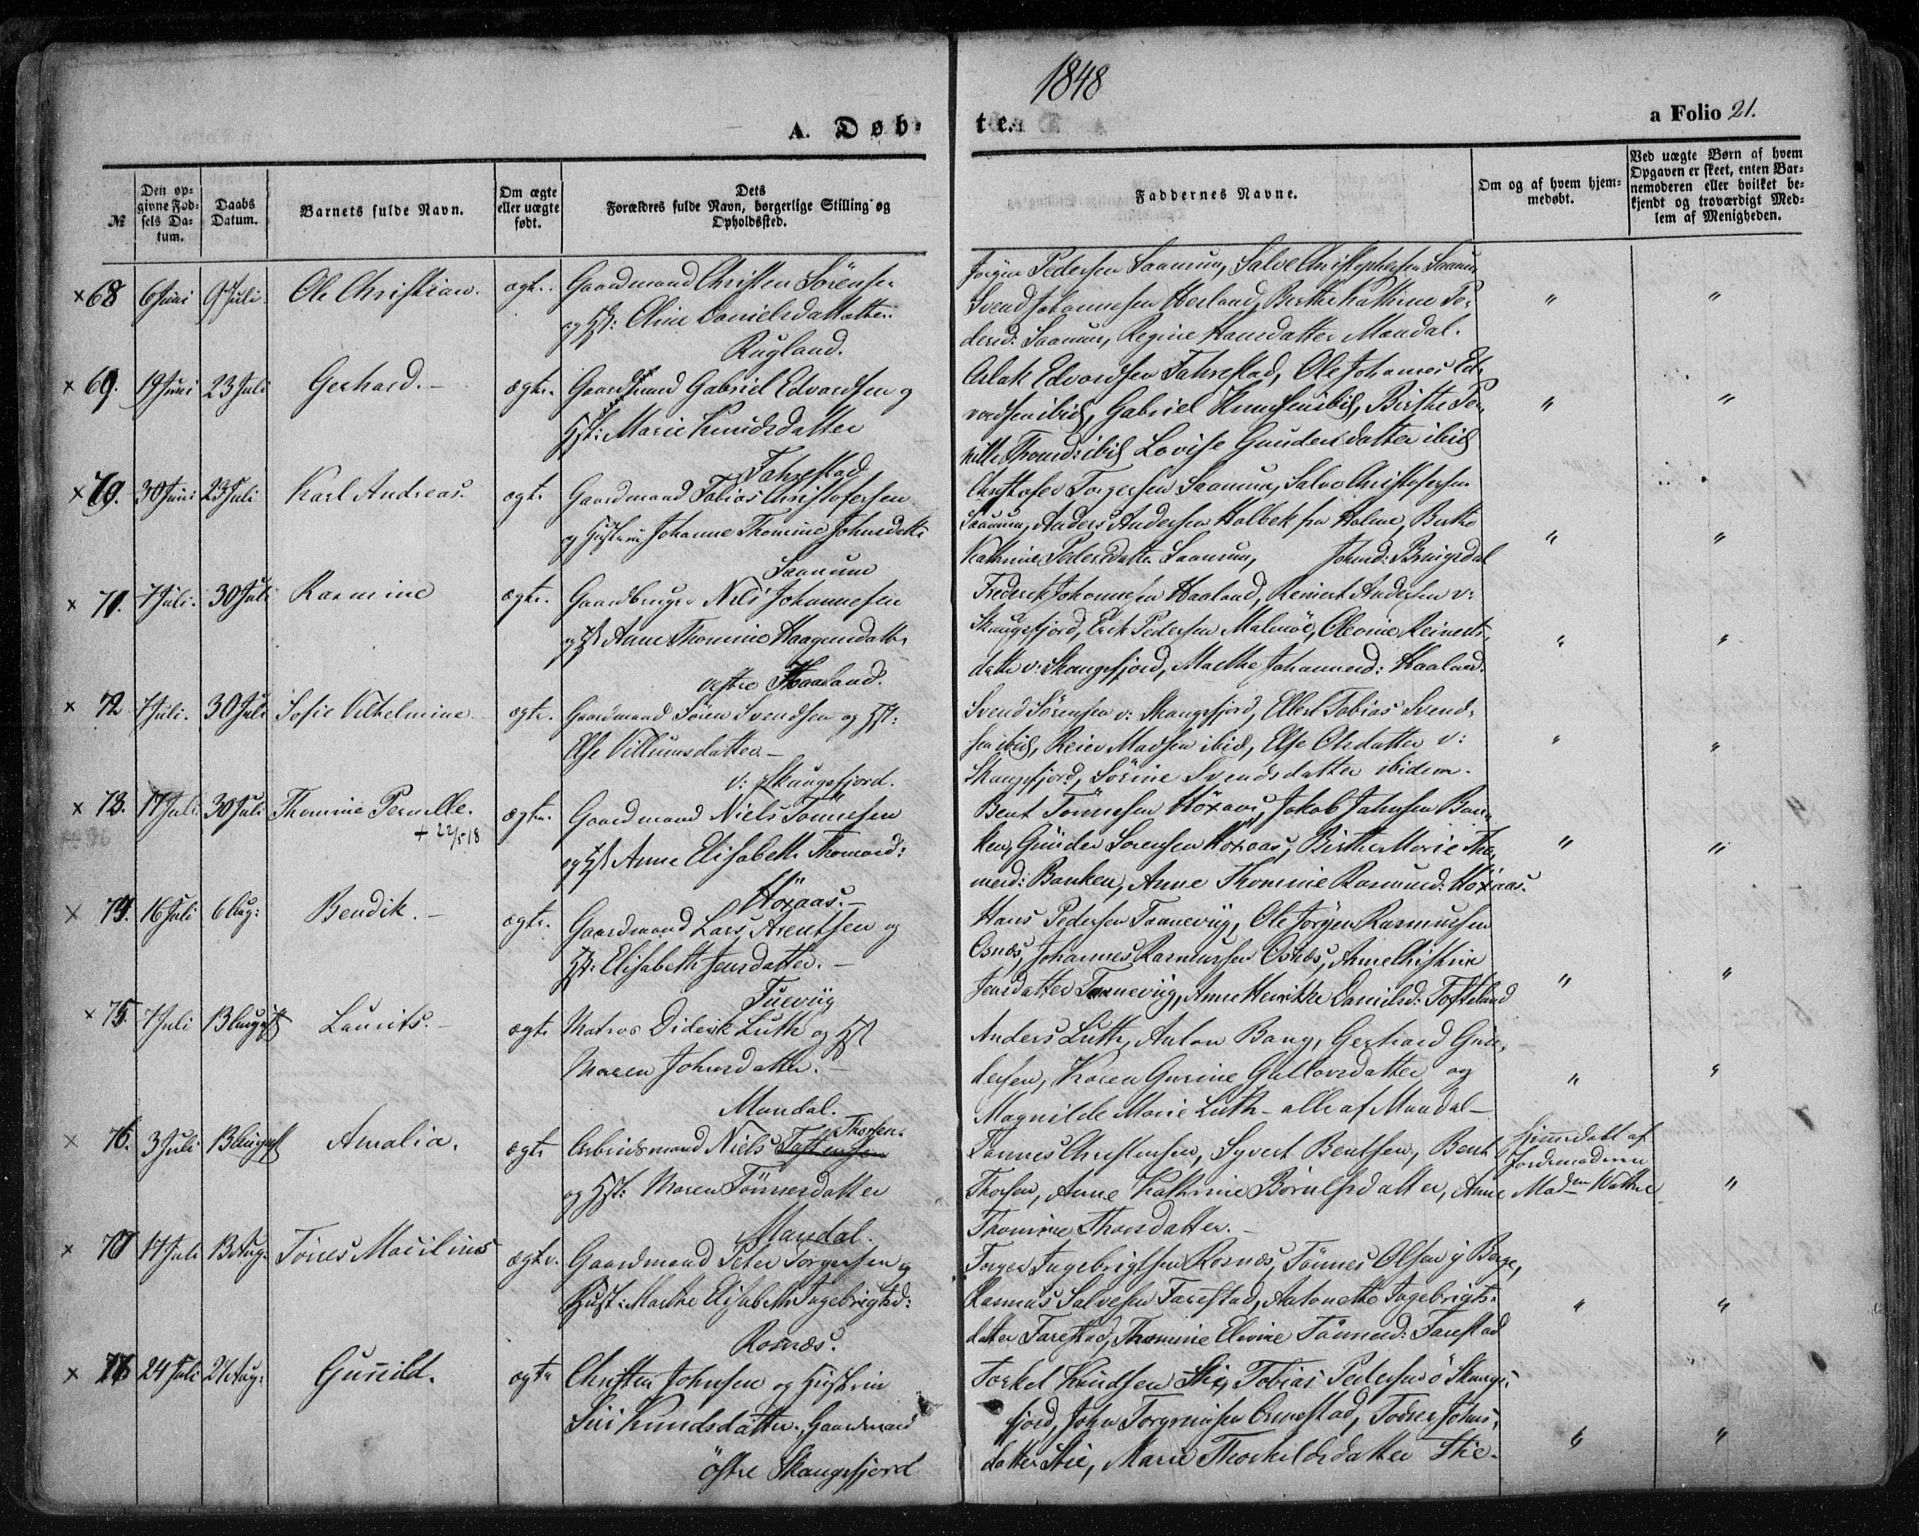 1848
A. Døb- te.
a Folio 21.
№
Den opgivne Fødsels Datum.
Daabs Datum.
Barnets fulde Navn.
Om ægte eller uægte født.
Dets Forældres fulde Navn, borgerlige Stilling og Opholdssted.
Faddernes Navne.
Om og af hvem hjemmedøbt.
Ved uægte Børn af hvem Opgaven er skeet, enten Barnemoderen eller hvilket bekjendt og troværdigt Medlem af Menigheden.
× 68 6 Juni 9 Juli. Ole Christian. ægt.
Gaardmand Christen Sörense-
og Hst: Oline Danielsdatter.
Rugland.
Jörgen Pedersen Saanum, Salve Christophersen Saanum
Svend Johannesen Herland, Birthe Kathrine Pe-
dersd: Saanum, Regine Hansdatter Mandal.
" "
× 69. 19 Juni 23 Juli Gerhard. - ægte.
Gaardmand Gabriel Edvardsen og
Hst: Marie Knudsdatter
Fahrestad
Aslak Edvardsen Fahrestad, Ole Johannes Ed-
vardsen ibid, Gabriel Knudsen ibid, Birthe Per-
nille Tromds ibid Lovise Gundersdatter ibid
" "
× 70. 30 Juni 23 Juli Karl Andreas. ægte
Gaardmand Tobias Christofersen
og Hustru Johanne Thomine Johnsdatt:
Saanum
Christofer Torgersen Saanum, Salve Christofersen
Saanum, Anders Andersen Holbek fra Holme, Berthe
Kathrine Pedersdatter Saanum, Johnsd: Bringsdal
" "
× 71. 7 Juli. 30 Juli Rasmine ægte.
Gaardbruger Niels Johannesen
og Hst Anne Thomine Haagensdatte
östre Haaland.
Frederik Johannesen Haaland, Reinert Andersen v:
Skaugsfjord, Erik Pedersen Malmöe, Olevine Reinerts-
datter v: Skangsfjord, Marthe Johannesd: Haaland:
" "
× 72 7 Juli. 30 Juli Sofie Vilhelmine ægte.
Gaardmand Sören Svendsen og Hst:
Else Villumsdatter -
v: Skaugsfjord.
Svend Sörensen v: Skangsfjord, Ellert Tobias Svend-
sen ibid, Reier Madsen ibid, Else Olsdatter v:
Skangsfjord, Sörine Svendsdatter ibidem.
" "
× 73. 17 Juli. 30 Juli Thomine Pernille. ægte.
+ 22/5 18
Gaardmand Niels Tönnesen
og Hst Anne Elisabeth Thomasd:
Höxaas. -
Bent Tönnesen Höxaas, Jakob Jahnsen Ban-
ken, Gunder Sörensen Höxaas, Birthe Marie Tho-
mesd: Banken, Anne Thomine Rasmusd: Höxaas.
" "
× 74. 16 Juli 6 Aug: Bendik. - ægte.
Gaardmand Lars Arentsen og
Hst: Elisabeth Jensdatter. -
Tuevüg
Hans Pedersen Taanevüg, Ole Jörgen Rasmussen
Osnes, Johannes Rasmussen Osnes, Anne Christine
Jensdatter Taanevüg, Anne Henrikke Danielsd: Tofteland
" "
× 75. 7 Juli 13 August Laurits. - ægte
Matros Diderik Luth og Hst
Maren Johnsdatter. -
Mandal.
Anders Luth, Anton Bang, Gerhard Gün-
dersen, Karen Gurine Gullovsdatter og
Magnilde Marie Luth - alle af Mandal -
" "
× 76. 3 Juli 13 August Amalia. ægte
Arbeidsmand Niels Thorsen.
og Hst: Maren Tönnesdatter
Mandal.
Tönnes Christensen, Syvert Bentsen, Bent
Thorsen, Anne Kathrine Börulfsdatter, Anne
Thomine Thorsdatter. -
hjemmedöbt af
Jordemoderen
Madm Wattne
"
× 77 17 Juli 13 Aug: Tönes Macilius ægte.
Gaardmand Peter Torgersen og
Hust: Marthe Elisabeth Ingebrigtsd:
Rosnæs.
Torger Ingebrigtsen Rosnæs, Tönnes Olsen y Berge,
Rasmus Salvesen Farestad, Antonette Ingebrigts-
datter Farestad, Thomine Elevine Tönnesd: Farestad
" "
× 78 24 Juli 27 Aug: Gunild. ægte
Christen Johnsen og Hustruen
Siri Knudsdatter. Gaardmand
östre Skangsfjord
Torkel Knudsen Stie, Tobias Pedersen ö Skangs-
fjord, John Torgrimsen Ormestad, Tonne Johns-
datter Stie, Marie Thorkildsdatter Stie.
" "